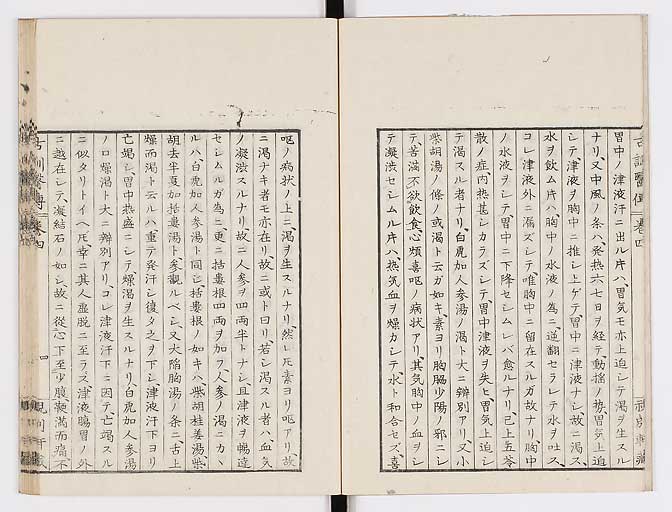 胃中ノ津液汗ニ出ル片ハ、胃気モ亦上迫シテ渇ヲ生スル
ナリ、又中風ノ条ハ、発熱六七日ヲ経テ、動揺ノ勢、胃気上迫
シテ、津液ヲ胸中ニ推シ上ゲテ、胃中ニ津液ナシ、故ニ渇ス、
水ヲ飲ム片ハ、胸中ノ水液ノ為ニ、逆翻セラレテ水ヲ吐ス、
コレ津液外ニ漏ズシテ、唯胸中ニ留在スルガ故ナリ、胸中
ノ水液ヲシテ、胃中ニ下降セシムレバ愈ルナリ、已上五苓
散ノ症、内熱甚シカラズシテ、胃中津液ヲ失ヒ、胃気上迫シ
テ渇スル者ナリ、白虎加人参湯ノ渇ト大ニ辨別アリ、又小
柴胡湯ノ條ノ或渇ト云ガ如キ、素ヨリ胸脇少陽ノ邪ニシ
テ、苦満不欲飲食、心煩喜嘔ノ病状アリ、其気胸中ノ血ヲシ
テ凝渋セシムル片ハ、熱気血ヲ燥カシテ、水ト和合セズ、喜
嘔ノ病状ノ上ニ、渇ヲ生スルナリ、然レ氏素ヨリ嘔アリ、故
ニ渇ナキ者モ亦在リ、故ニ或ト曰リ、若シ渇スル者ハ、血気
ノ凝渋スルナリ、故ニ人参ヲ四両半トナシ、且津液ヲ暢達
セシムルガ為ニ、更ニ括蔞根四両ヲ加フ、人参ノ渇ニカヽ
ルハ、白虎加人参湯ト同シ、括蔞根ノ如キハ、柴胡桂姜湯、柴
胡去半夏加括蔞湯ト参観ルベシ、又大陥胸湯ノ条ニ舌上
燥而渇ト云ルハ、重テ発汗シ復タ之ヲ下シ、津液汗下ヨリ
亡竭シ、胃中熱盛ニシテ燥渇ヲ生スルナリ、白虎加人参湯
ノ口燥渇ト大ニ辨別アリ、コレ津液汗下ニ因テ亡竭スル
ニ似タリトイヘ氏、幸ニ其人虚脱ニ至ラズ、津液腸胃ノ外
ニ越在シテ、凝結石ノ如シ、故ニ從心下至少腹、鞕満而痛不
古訓醫傳 巻四
四